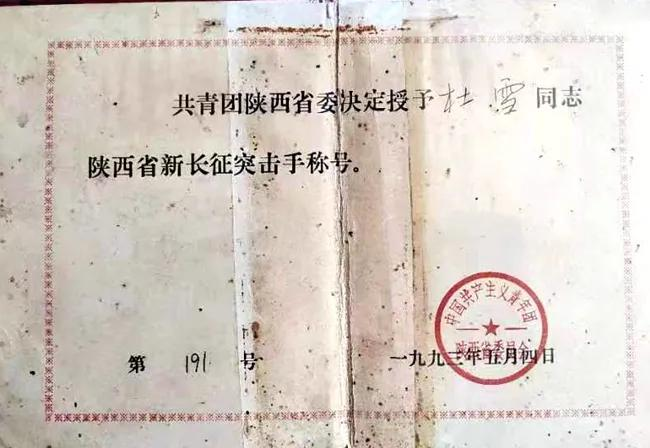 共青团陕西省委决定授予杜雪同志
陕西省新长征突击手称号。
中国共产主义青年团
陕西省委员会
第 191 号
一九九三年五月四日